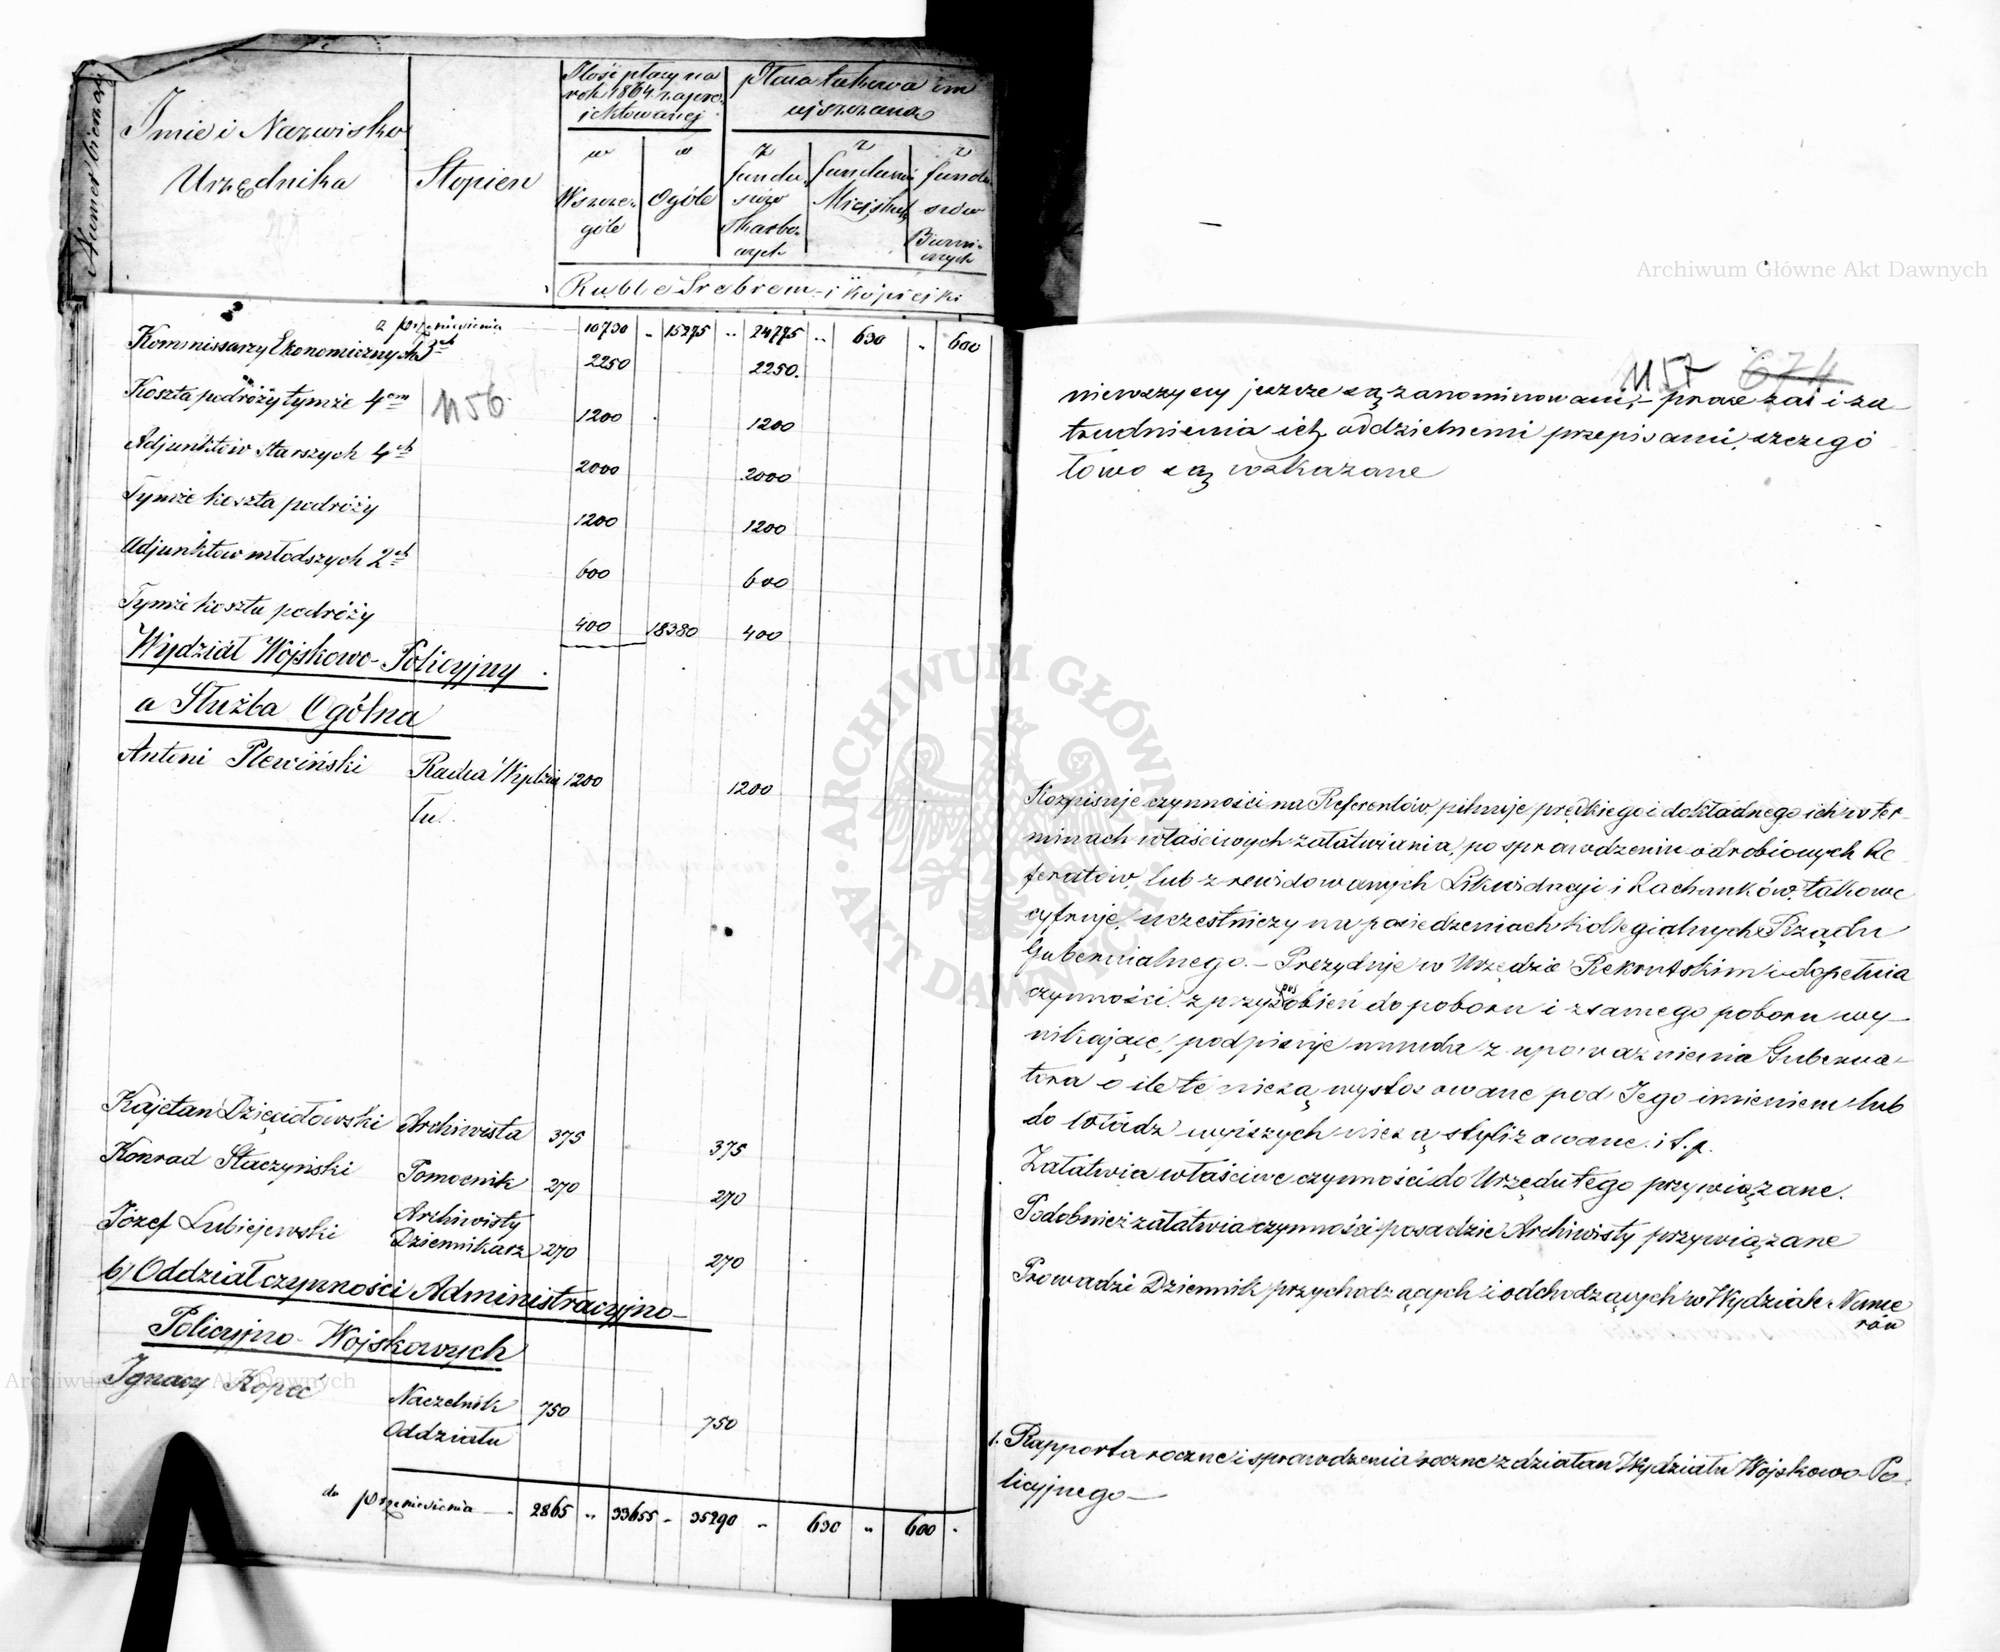 Numer bieżący
Imie i Nazwisko
Urzędnika
Stopien
Ilość płacy na
rok 1864 zapro-
jektowanej
Płaca takowa im
uiszczana
w
Wszcze-
góle
w
Ogóle
z
fundu-
szów
Skarbo-
wych
z
funduszów
Miejskich
z
fundu-
szów
Ruble Srebrem i kopiejki
z przeniesienia 10730 „ 15275 „ 24775 „ 630 „ 600
Kommissarzy Ekonomicznych 3ch 2250 2250.
Koszta podróży tymże 4em 1200 1200
1156
Adjunktów Starszych 4ch 2000 2000
Tymże koszta podróży 1200 1200
Adjunktow młodszych 2ch 600 600
Tymże koszta podróży 400 18380 400
Wydział Wojskowo-Policyjny
a Służba Ogólna
Antoni Plewiński Radca Wydzia 1200 1200
łu.
Kajetan Dzięciołowski Archiwista 375 375
Konrad Staczyński Pomocnik 270 270
Archiwisty
Józef Lubiejewski Dziennikarz 270 270
b/ Oddział czynności Administracyjno-
Policyjno-Wojskowych
Ignacy Kopeć Naczelnik 750 750
Oddziału
do przeniesienia 2865 „ 33655 „ 35290 „ 630 „ 600 „
1157 674
niewszyscy jeszcze są zanominowani, – prace zaś i za-
trudnienia ich oddzielnemi przepisami, szczegó
łowo są wskazane
Rozpisuje czynności na Referentów, pilnuje prędkiego i dokładnego ich w ter-
minach właściwych załatwiania, po sprawdzeniu odrobionych Re-
feratów, lub zrewidowanych Likwidacji i Rachunków, takowe
cyfruje, uczestniczy na posiedzeniach kollegialnych Rządu
Gubernialnego. – Prezyduje w Urzędzie Rekrutskim i dopełnia
czynności z przysposobień do poboru i z samego poboru wy-
nikające, podpisuje munda z upoważnienia Guberna-
tora o ile te nie są wystosowane pod Jego imieniem lub
do władz wyższych nie są stylizowane. i t. p.
Załatwia właściwe czynności do Urzędu tego przywiązane.
Podobnież załatwia czynności posadzie Archiwisty przywiązane
Prowadzi Dziennik przychodzących i odchodzących w Wydziale Nume
rów
1. Rapporta roczne i sprawdzenia roczne z działań Wydziału Wojskowo-Po-
licyjnego –
Archiwum Główne Akt Dawnych
ARCHIWUM GŁÓWNE AKT DAWNYCH
Archiwum Główne Akt Dawnych